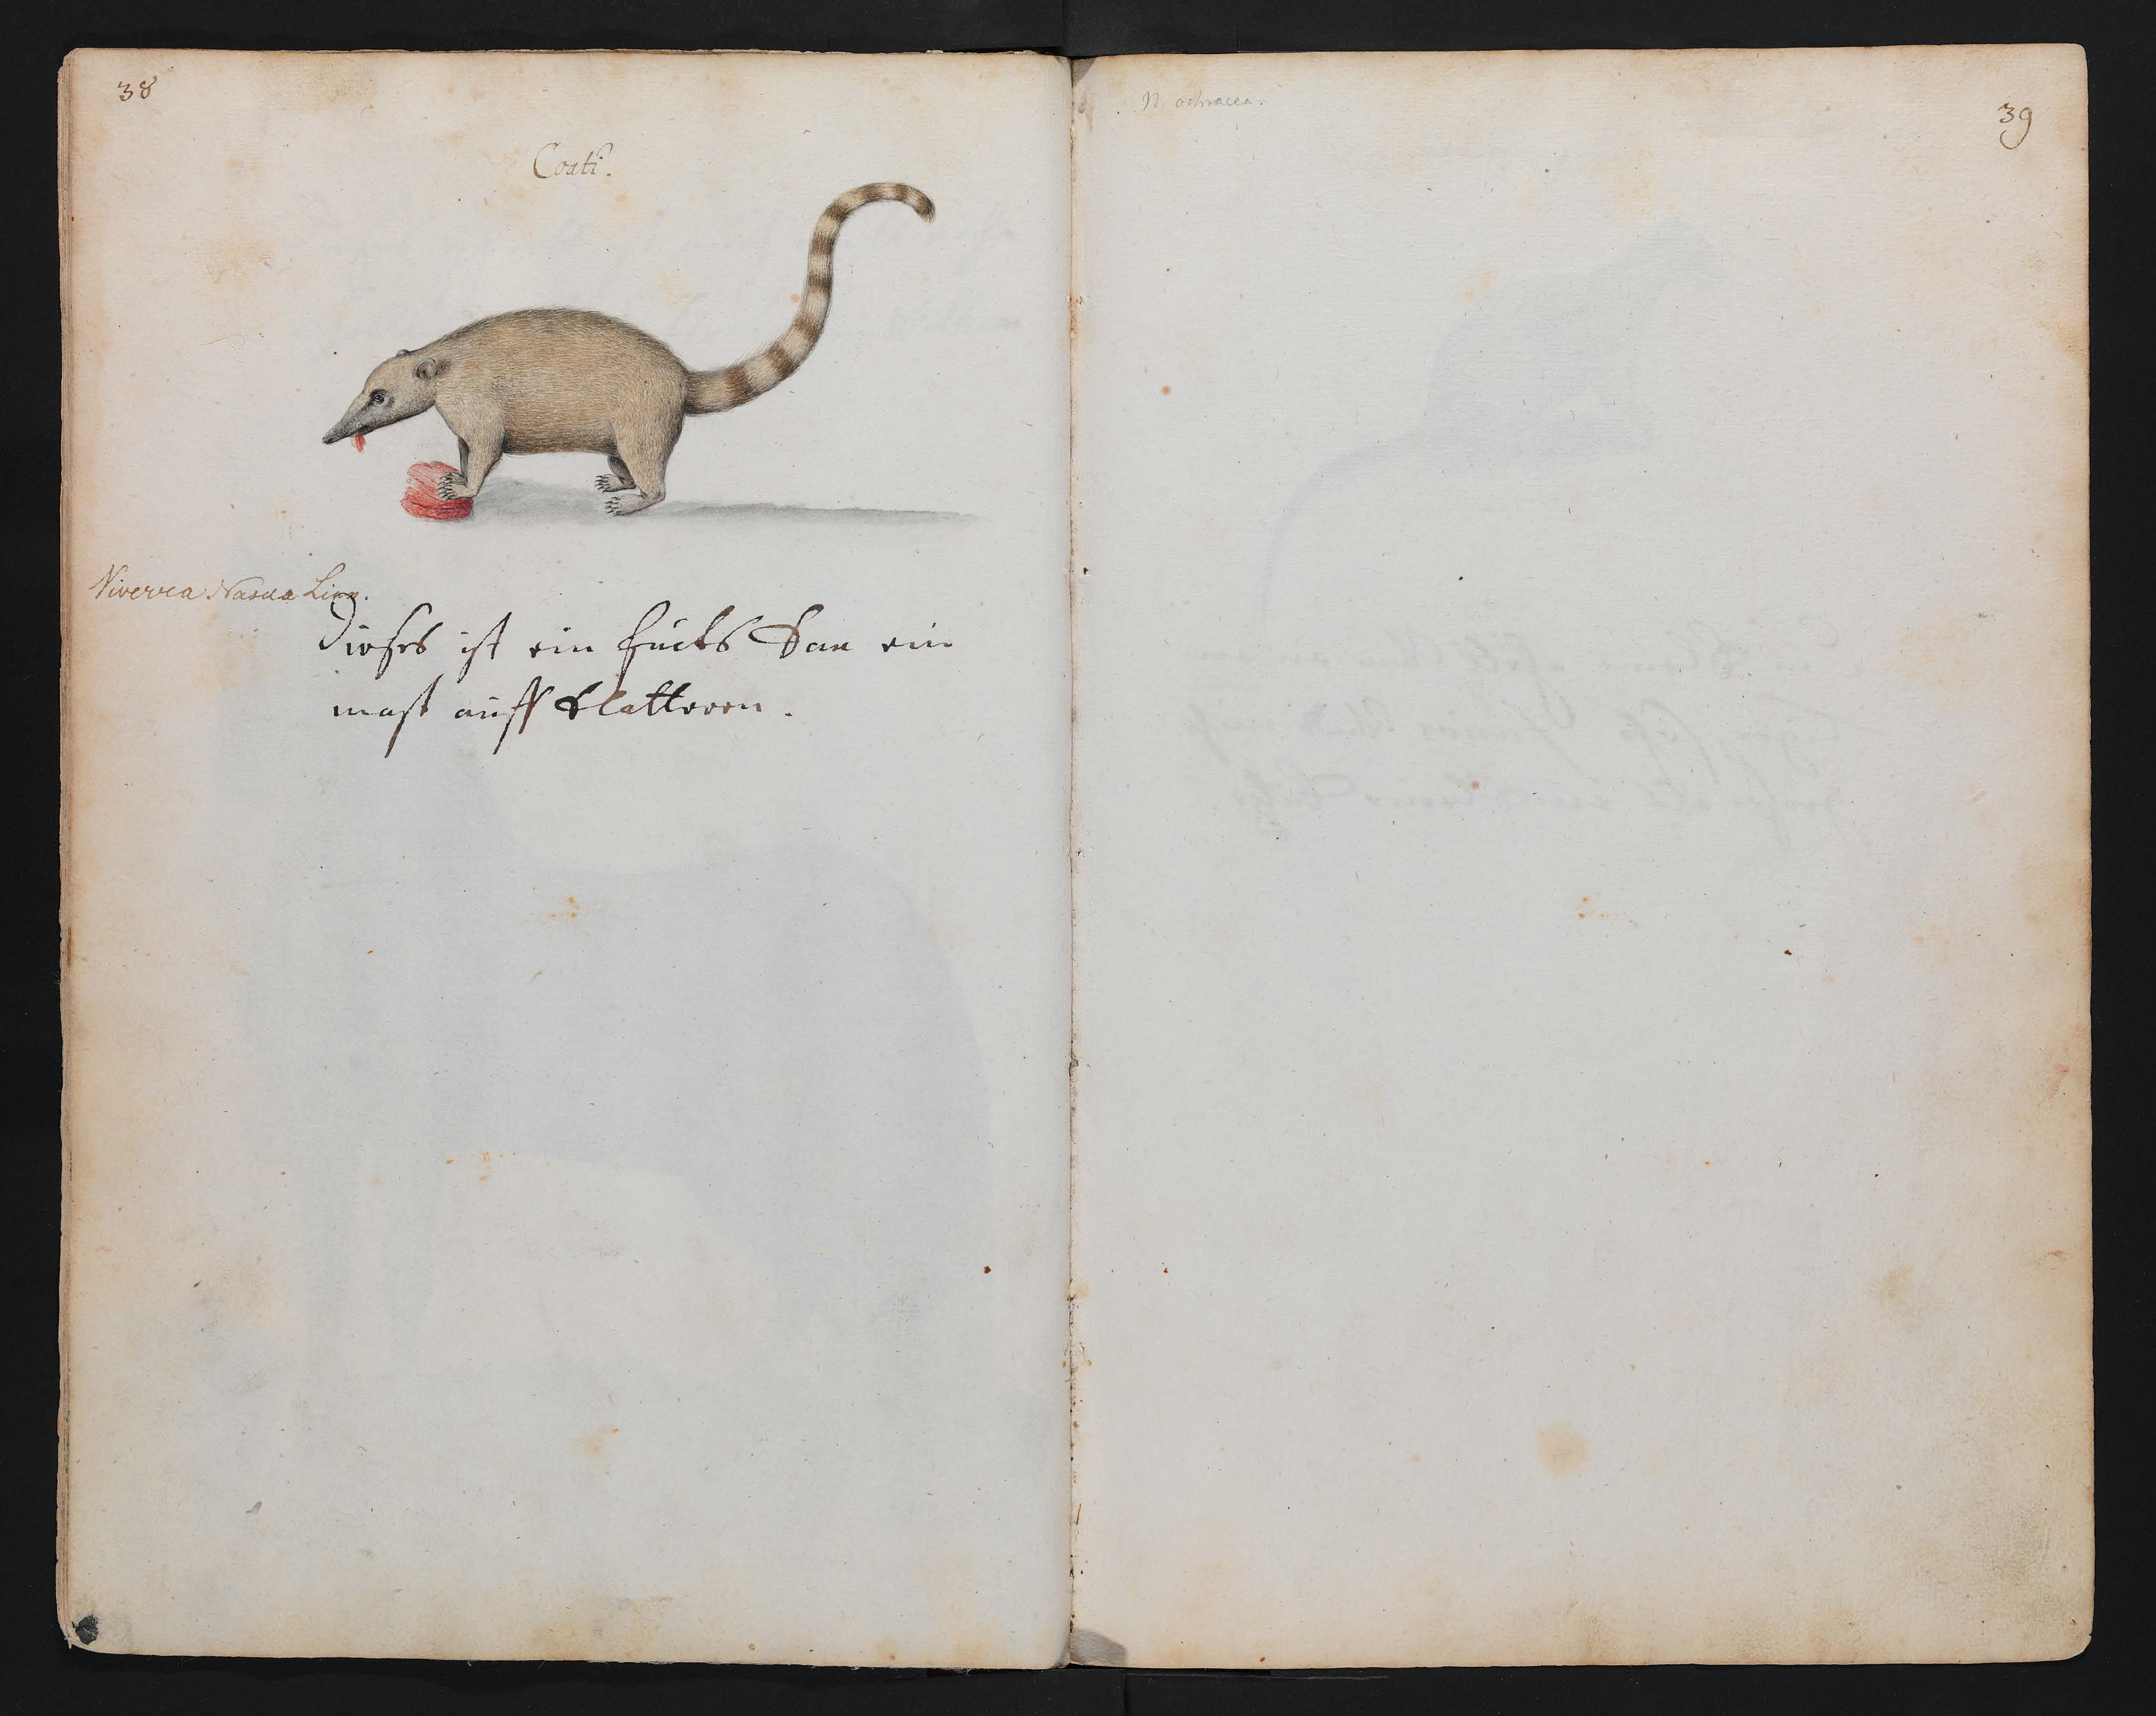 38
Coati.
Viverra Nasua Linn.
Dieses ist ein fucks kan ein
mast auff klatteren.
N. ochracea.
39